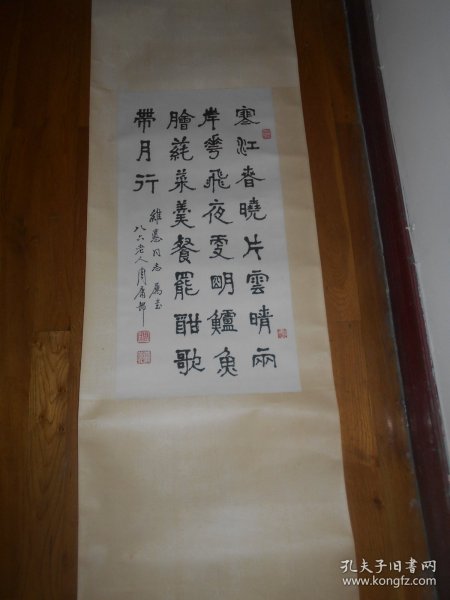 寒江春曉片雲晴兩
岸華飛夜更明鱸魚
膾蒓菜羹餐罷酣歌
帶月行
維慕同志屬書
八六老人周庸邨
孔夫子旧书网
www.kongfz.com